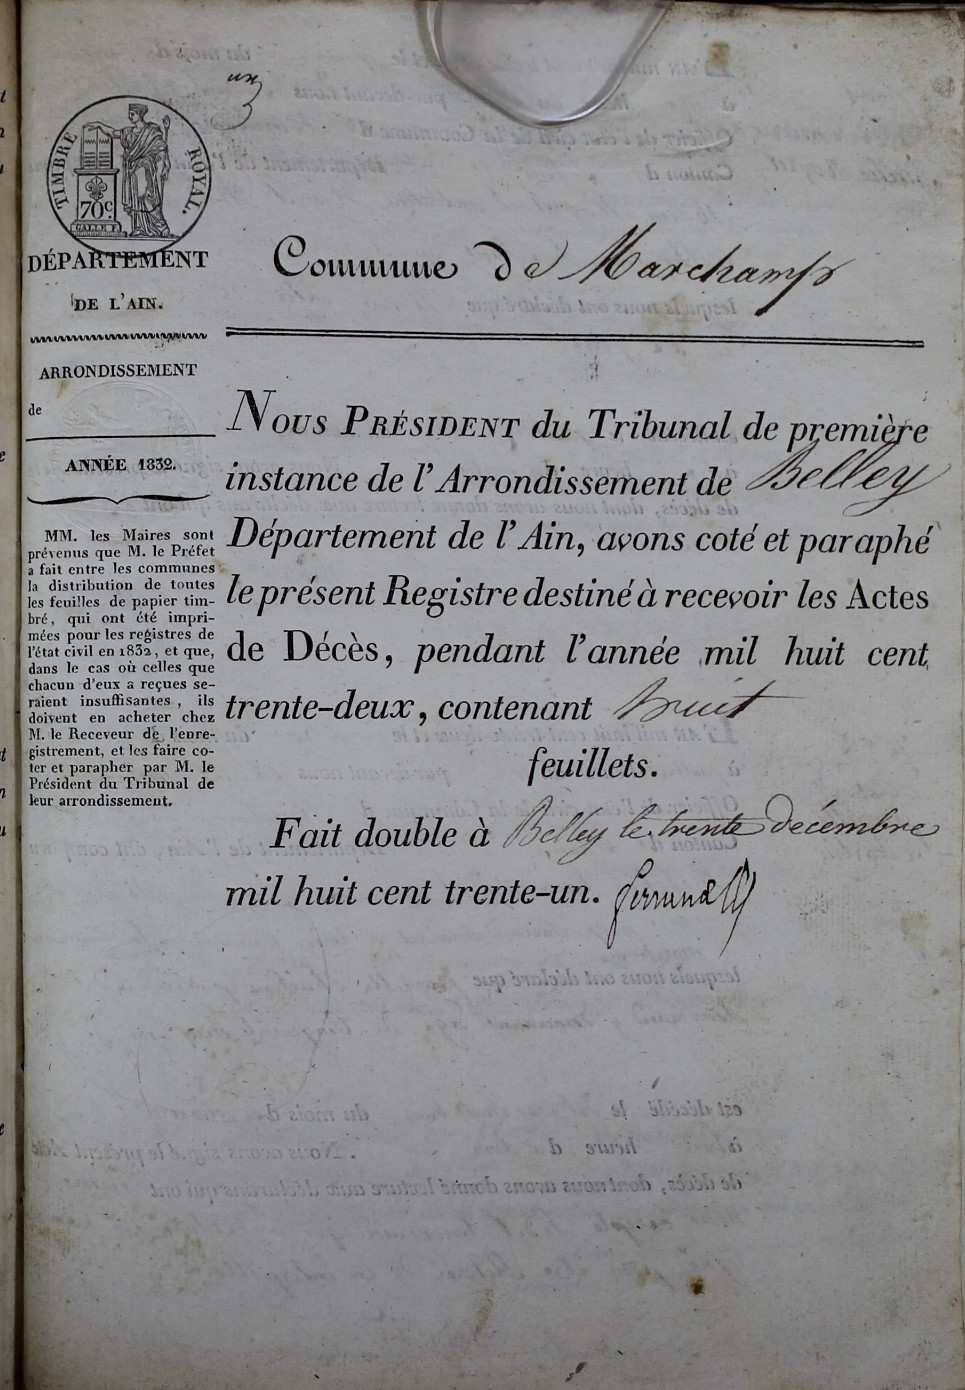 un
TIMBRE ROYAL.
70c.
DÉPARTEMENT
DE L'AIN.
ARRONDISSEMENT
de
ANNÉE 1832.
MM. les Maires sont
prévenus que M. le Préfet
a fait entre les communes
la distribution de toutes
les feuilles de papier tim-
bré, qui ont été impri-
mées pour les registres de
l'état civil en 1832, et que,
dans le cas où celles que
chacun d'eux a reçues se-
raient insuffisantes, ils
doivent en acheter chez
M. le Receveur de l'enre-
gistrement, et les faire co-
ter et parapher par M. le
Président du Tribunal de
leur arrondissement.
Commune de Marchamp
NOUS PRÉSIDENT du Tribunal de première
instance de l'Arrondissement de Belley
Département de l'Ain, avons coté et paraphé
le présent Registre destiné à recevoir les Actes
de Décès, pendant l'année mil huit cent
trente-deux, contenant huit
feuillets.
Fait double à Belley le trente décembre
mil huit cent trente-un.